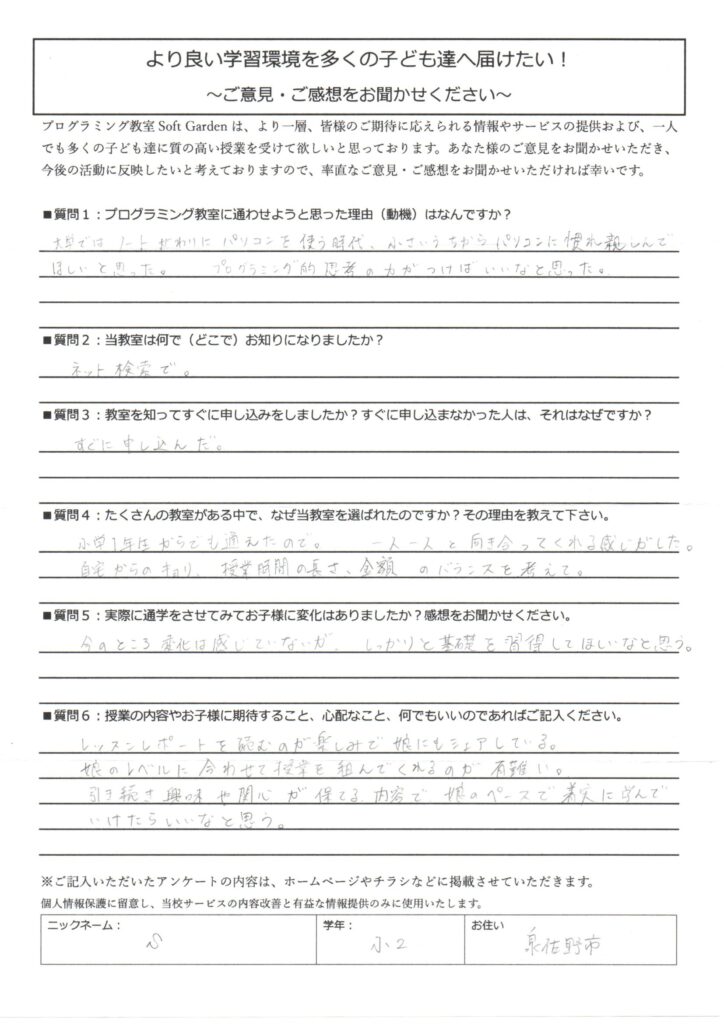 より良い学習環境を多くの子ども達へ届けたい！
～ご意見・ご感想をお聞かせください～
プログラミング教室 Soft Garden は、より一層、皆様のご期待に応えられる情報やサービスの提供および、一人
でも多くの子ども達に質の高い授業を受けて欲しいと思っております。あなた様のご意見をお聞かせいただき、
今後の活動に反映したいと考えておりますので、率直なご意見・ご感想をお聞かせいただければ幸いです。
■質問１：プログラミング教室に通わせようと思った理由（動機）はなんですか？
大学では ノートがわりに パソコンを 使う時代、小さいうちから パソコンに 慣れ親しんで
ほしいと思った。 プログラミング的思考の力がつけばいいなと思った。
■質問２：当教室は何で（どこで）お知りになりましたか？
ネット検索で。
■質問３：教室を知ってすぐに申し込みをしましたか？すぐに申し込まなかった人は、それはなぜですか？
すぐに申し込んだ。
■質問４：たくさんの教室がある中で、なぜ当教室を選ばれたのですか？その理由を教えて下さい。
小学1年生からでも通えたので。 一人一人と向き合ってくれる感じがした。
自宅からのキョリ、授業時間の長さ、金額 のバランスを考えて。
■質問５：実際に通学をさせてみてお子様に変化はありましたか？感想をお聞かせください。
今のところ変化は感じていないが、しっかりと基礎を習得してほしいなと思う。
■質問６：授業の内容やお子様に期待すること、心配なこと、何でもいいのであればご記入ください。
レッスンレポートを読むのが楽しみで娘にもシェアしている。
娘のレベルに合わせて授業を組んでくれるのが有難い。
引き続き興味や関心が保てる内容で、娘のペースで着実に学んで
いけたらいいなと思う。
※ご記入いただいたアンケートの内容は、ホームページやチラシなどに掲載させていただきます。
個人情報保護に留意し、当校サービスの内容改善と有益な情報提供のみに使用いたします。
ニックネーム： 学年： お住い
S 小2 泉佐野市